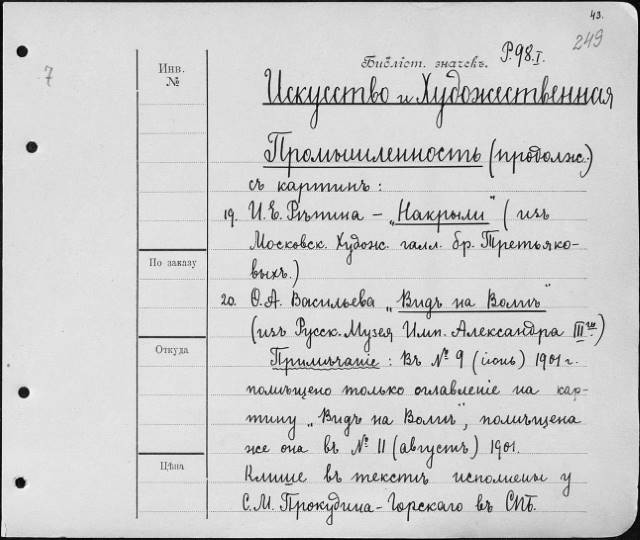 43.
249
7
Инв.
№
Библіот. значекъ. Р.98.I.
Искусство и Художественная
Промышленность (продолж.)
съ картинъ:
19. И.Е. Рѣпина – „Накрыли" (изъ
Московск. Худож. галл. бр. Третьяко-
выхъ.)
По заказу
20. Ѳ.А. Васильева „Видъ на Волгѣ"
(изъ Русск. Музея Имп. Александра IIIго)
Откуда
Примѣчаніе: Въ № 9 (іюнь) 1901 г.
помѣщено только оглавленіе на кар-
тину „Видъ на Волгѣ", помѣщена
же она въ № 11 (августъ) 1901.
Цѣна
Клише въ текстѣ исполнены у
С.М. Прокудина-Горскаго въ СПБ.